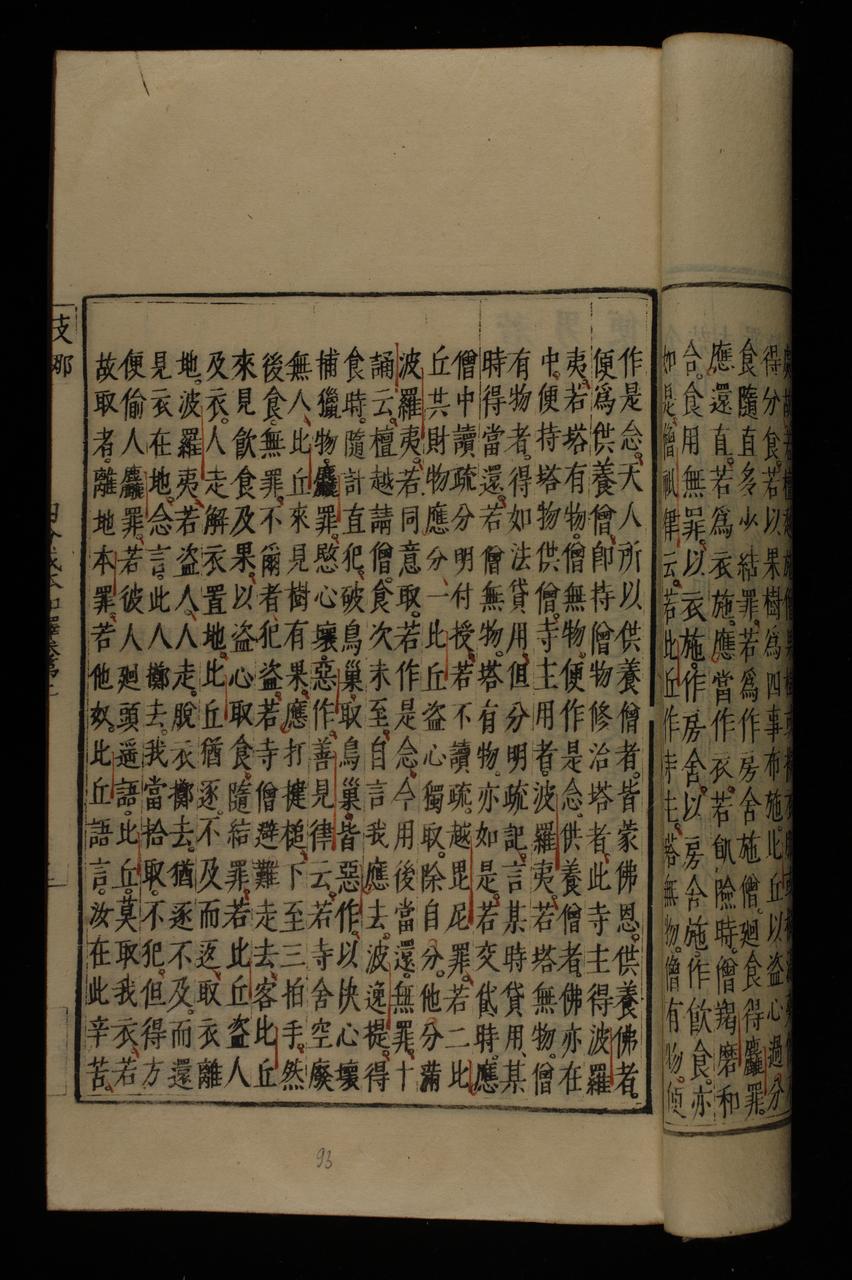 得分食。若以果樹爲四事布施。比丘以盜心過分
食隨直多少結罪。若爲作房舍施僧。廻食得麤罪。
應還直。若爲衣施。應當作衣。若飢險時。僧羯磨和
合。食用無罪。以衣施。作房舍。以房舍施。作飲食。亦
如是。僧祇律云。若比丘作寺主。塔無物。僧有物。便
作是念。天人所以供養僧者。皆蒙佛恩。供養佛者。
便爲供養僧。卽持僧物修治塔者。此寺主得波羅
夷。若塔有物。僧無物。便作是念。供養僧者。佛亦在
中。便持塔物供僧。寺主用者。波羅夷。若塔無物。僧
有物者。得如法貸用。但分明疏記。言某時貸用。某
時得當還。若僧無物。塔有物。亦如是。若交貸時。應
僧中讀疏分明付授。若不讀疏。越毘尼罪。若二比
丘共財物應分。一比丘盜心獨取。除自分。他分滿
波羅夷。若同意取。若作是念。今用後當還。無罪。十
誦云。檀越請僧食。次未至。自言我應去。波逸提。得
食時。隨計直犯。破鳥巢。取鳥巢。皆惡作。以快心壞
捕獵物。麤罪。愍心壞。惡作。善見律云。若寺舍空廢
無人。比丘來見樹有果。應打揵槌。下至三拍手。然
後食。無罪。不爾者。犯盜。若寺僧避難走去。客比丘
來見飲食及果。以盜心取食。隨結罪。若比丘盜人
及衣。人走解衣置地。比丘猶逐。不及而返。取衣離
地。波羅夷。若盜人。人走。脫衣擲去。猶逐不及。而還
見衣在地。念言。此人擲去。我當拾取。不犯。但得方
便偷人麤罪。若彼人廻頭遥語。比丘。莫取我衣。若
故取者。離地本罪。若他奴。比丘語言。汝在此辛苦。
支那
93